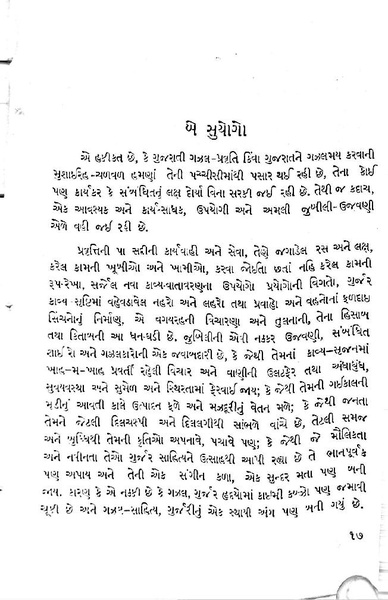 બે સુયોગો
એ હકીકત છે, કે ગુજરાતી ગઝલ-પ્રવૃત્તિ કિંવા ગુજરાતને ગઝલમય કરવાની
મુશાઇરિહ-ચળવળ હમણાં તેની પચ્ચીસીમાંથી પસાર થઈ રહી છે, તેના કોઈ
પણ કાર્યકર કે સંબંધિતનું લક્ષ દોર્યા વિના સરકી જઈ રહી છે. તેથી જ કદાચ,
એક આવશ્યક અને કાર્ય-સાધક, ઉપયોગી અને અમલી જુબીલી-ઉજવણી
એળે વહી જઈ રહી છે.
પ્રવૃત્તિની પા સદીની કાર્યવાહી અને સેવા, તેણે જગાડેલ રસ અને લક્ષ,
કરેલ કામની ખૂબીઓ અને ખામીઓ, કરવા જોઈતા છતાં નહિ કરેલ કામની
રૂપ-રેખા, સર્જેલ નવા કાવ્ય-વાતાવરણના ઉપયોગો પ્રયોગોની વિગતો, ગુર્જર
કાવ્ય-સૃષ્ટિમાં વહેવડાવેલ નહરો અને લહરો તથા પ્રવાહો અને વહનોનાં ફળદાઇ
સિંચનોનું નિર્માણ, એ વગયરહની વિચારણા અને તુલનાની, તેના હિસાબ
તથા કિતાબની આ ધન-ઘડી છે. જુબિલીની એવી નક્કર ઉજવણી, સંબંધિત
શાઇરો અને ગઝલકારોની એક જવાબદારી છે, કે જેથી તેમનાં કાવ્ય-સૃજનમાં
ખાહ-મ-ખાહ પ્રવર્તી રહેલી વિચાર અને વાણીની ઉલટફેર તથા અંધાધુંધ,
સુવ્યવસ્થા અને સુમેળ અને સ્થિરતામાં ફેરવાઈ જાય; કે જેથી તેમની ગઈકાલની
મૂડીનું આવતી કાલે ઉત્પાદન ફળે અને મઝદૂરીનું વેતન મળે; કે જેથી જનતા
તેમને જેટલી દિલચસ્પી અને દિલલગીથી સાંભળે વાંચે છે, તેટલી સમજ
અને બુદ્ધિથી તેમની કૃતિઓ અપનાવે, પચાવે પણ; કે જેથી જે મૌલિકતા
અને નવીનતા તેઓ ગુર્જર સાહિત્યને ઉત્સાહથી આપી રહ્યા છે તે ભાનપૂર્વક
પણ અપાય અને તેની એક સંગીન કળા, એક સુન્દર મતા પણ બની
જાય. કારણ કે એ નક્કી છે કે ગઝલ, ગુર્જર હૃદયોમાં કાયમી કબ્જો પણ જમાવી
ચૂકી છે અને ગઝલ-સાહિત્ય, ગુર્જરીનું એક સ્થાયી અંગ પણ બની ગયું છે.
૧૭